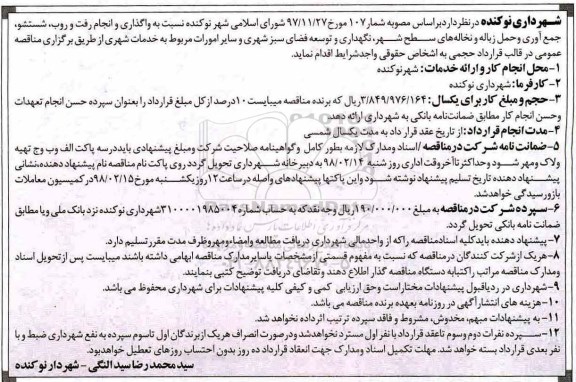 شهرداری نوکنده در نظر دارد براساس مصوبه شمار ۱۰۷ مورخ ۹۷/۱۱/۲۷ شورای اسلامی شهر نوکنده نسبت به واگذاری و انجام رفت و روب، شستشو،
جمع آوری وحمل زباله و نخاله‌های سطح شهر، نگهداری و توسعه فضای سبز شهری و سایر امورات مربوط به خدمات شهری از طریق برگزاری مناقصه
عمومی در قالب قرارداد حجمی به اشخاص حقوقی واجدشرایط اقدام نماید.
۱-محل انجام کار و ارائه خدمات: شهرنوکنده
۲-کارفرما: شهرداری نوکنده
۳-حجم و مبلغ کار برای یکسال: ۳/۸۴۹/۹۷۶/۱۶۴ریال که برنده مناقصه میبایست ۱۰درصد از کل مبلغ قرارداد را بعنوان سپرده حسن انجام تعهدات
وحسن انجام کار مطابق ضمانت‌نامه بانکی به شهرداری ارائه دهد.
۴-مدت انجام قرارداد: از تاریخ عقد قرار داد به مدت یکسال شمسی
۵-ضمانت نامه شرکت در مناقصه /اسناد ومدارک لازمه بطور کامل وگواهینامه صلاحیت شرکت ومبلغ پیشنهادی بایددرسه پاکت الف وب وج تهیه
ولاک ومهر شود وحداکثرتاآخروقت اداری روز شنبه ۹۸/۰۲/۱۴ به دبیرخانه شهرداری تحویل گردد روی پاکت نام مناقصه نام پیشنهاد دهنده،نشانی
پیشنهاد دهنده تاریخ تسلیم پیشنهاد نوشته شود واین پاکتها پیشنهادهای واصله درساعت ۱۲روزیکشنبه مورخ ۹۸/۰۲/۱۵درکمیسیون معاملات
بازورسیدگی خواهدشد.
۶-سپرده شرکت در مناقصه به مبلغ ۱۹۰/۰۰۰/۰۰۰ریال وجه نقدکه به حساب شماره ۳۱۰۰۰۰۱۹۸۵۰۰۴شهرداری نوکنده نزد بانک ملی ویا مطابق
ضمانت نامه بانکی تحویل گردد.
۷-پیشنهاد دهنده بایدکلیه اسنادمناقصه راکه از واحدمالی شهرداری دریافت مطالعه وامضاءومهروظرف مدت مقررتسلیم دارد.
۸-هریک ازشرکت کنندگان درمناقصه که نسبت به مفهوم قسمتی ازمشخصات یاسایرمدارک مناقصه ابهامی داشته باشند میبایست پس ازتحویل اسناد
ومدارک مناقصه مراتب راکتبابه دستگاه مناقصه گذار اطلاع دهند وتقاضای دریافت توضیح کتبی بنمایند.
۹-شهرداری در ردیاقبول پیشنهادات مختاراست وحق ارزیابی کمی و کیفی کلیه پیشنهادات برای شهرداری محفوظ می باشد.
۱۰-هزینه های انتشارآگهی در روزنامه بعهده برنده مناقصه می باشد.
۱۱- به پیشنهادات مبهم، مخدوش، مشروط و فاقد سپرده ترتیب اثرداده نخواهد شد.
۱۲-سپرده نفرات دوم وسوم تاعقدقرارداد بانفر اول مسترد نخواهدشد ودرصورت انصراف هریک ازبرندگان اول تاسوم سپرده به نفع شهرداری ضبط و با
نفر بعدی قرارداد بسته خواهد شد. مهلت تکمیل اسناد ومدارک جهت انعقاد قرارداد ده روز بدون احتساب روزهای تعطیل خواهدبود.
سیدمحمدرضاسیدالنگی - شهردار نوکنده